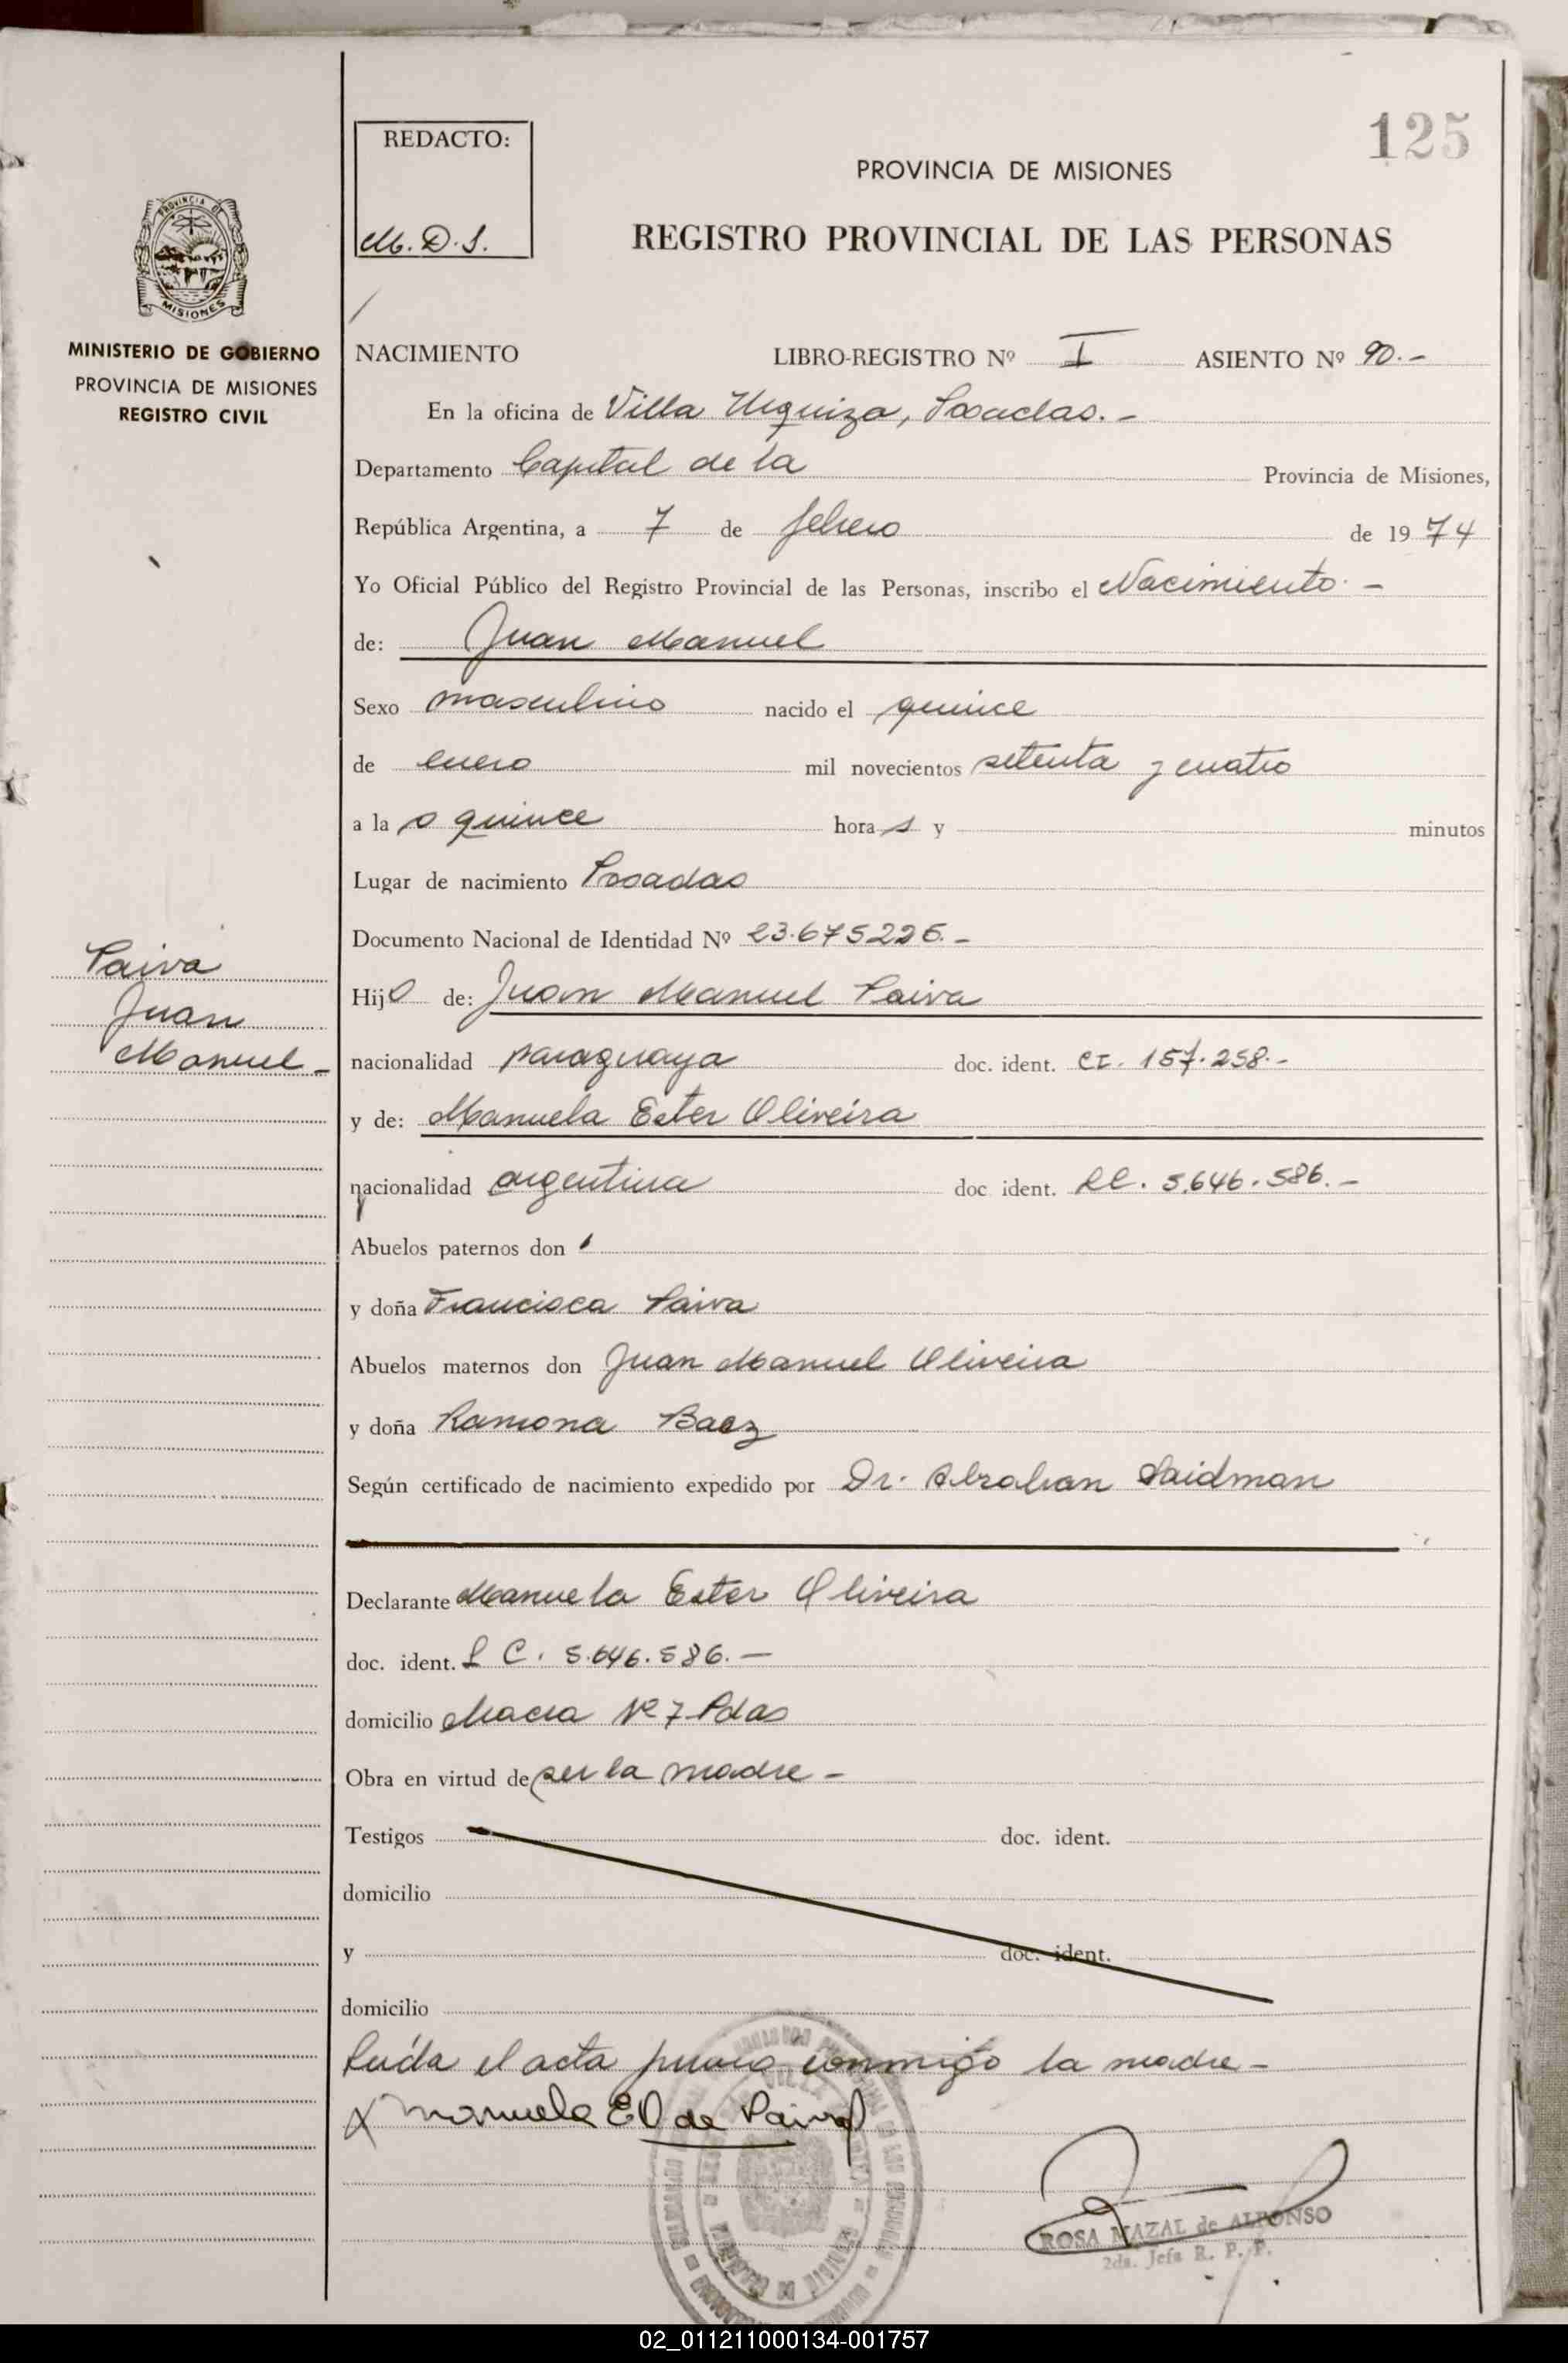 125
REDACTO:
M. D. S.
PROVINCIA DE MISIONES
REGISTRO PROVINCIAL DE LAS PERSONAS
PROVINCIA DE
MISIONES
MINISTERIO DE GOBIERNO
PROVINCIA DE MISIONES
REGISTRO CIVIL
NACIMIENTO LIBRO-REGISTRO Nº I ASIENTO Nº 90.-
En la oficina de Villa Urquiza, Posadas.-
Departamento Capital de la Provincia de Misiones,
República Argentina, a 7 de febrero de 1974
Yo Oficial Público del Registro Provincial de las Personas, inscribo el Nacimiento.-
de: Juan Manuel
Sexo masculino nacido el quince
de enero mil novecientos setenta y cuatro
a la s quince hora s y minutos
Lugar de nacimiento Posadas
Documento Nacional de Identidad Nº 23.675226.-
Paiva
Juan
Manuel-
Hijo de: Juan Manuel Paiva
nacionalidad paraguaya doc. ident. CI. 157.258.-
y de: Manuela Ester Oliveira
nacionalidad argentina doc ident. LC. 5.646.586.-
Abuelos paternos don
y doña Francisca Paiva
Abuelos maternos don Juan Manuel Oliveira
y doña Ramona Baez
Según certificado de nacimiento expedido por Dr. Abrahan Saidman
Declarante Manuela Ester Oliveira
doc. ident. L C. 5.646.586.-
domicilio Chacra Nº 7 Pdas
Obra en virtud de ser la madre-
Testigos doc. ident.
domicilio
y doc. ident.
domicilio
Leída el acta firma conmigo la madre-
X Manuela E O de Paiva
ROSA MAZAL de ALFONSO
2da. Jefa R. P. P.
02_011211000134-001757